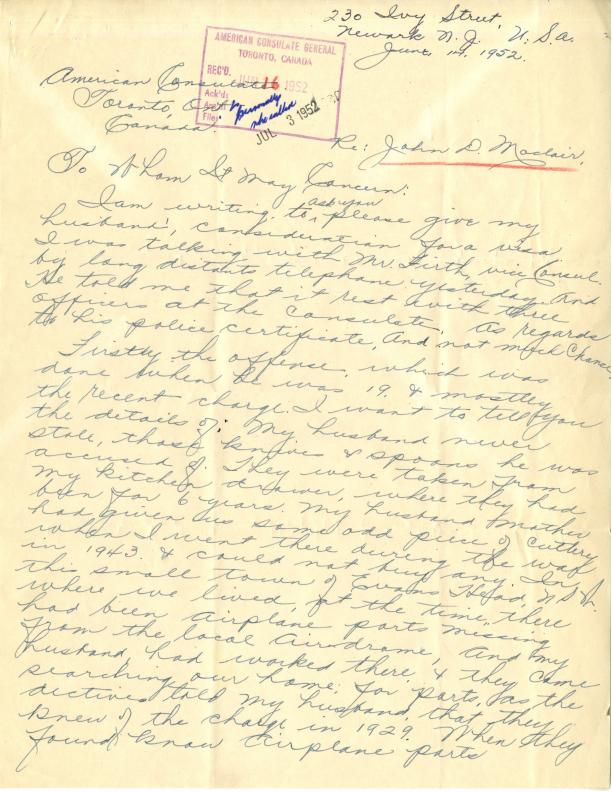 230 Ivy Street,
Newark N.J. U.S.A.
June 14, 1952.
AMERICAN CONSULATE GENERAL
TORONTO, CANADA
REC'D. JUN 16 1952
Ack'd
Ans'd
File
personally
he called
JUL 3 1952
American Consulate
Toronto, Ont.
Canada.
Re: John D. Moclair.
To Whom It May Concern:
I am writing to ask you please give my
husband, consideration for a visa
I was talking with Mr. Firth, vice Consul.
by long distants telephone yesterday. And
He told me that it rest with three
officers at the consulate, as regards
to his police certificate, And not much Chance
Firstly the offense, which was
done when he was 19. & mostly
the recent charge. I want to tell you
the details of: My husband never
stole, those knives & spoons he was
accused of. They were taken from
my kitchen drawer, where they had
been for 6 years. My husband mother
had given us some odd piece of cuttery
when I went there during the war
in 1943. & could not buy any. In
this small town of Evans Head, N.S.W.
where we lived, at the time, there
had been airplane parts missing
from the local Air-drome, And my
husband, had worked there & they came
searching our home, for parts, as the
dictives told my husband, that they
knew of the charge in 1929. When they
found know airplane parts